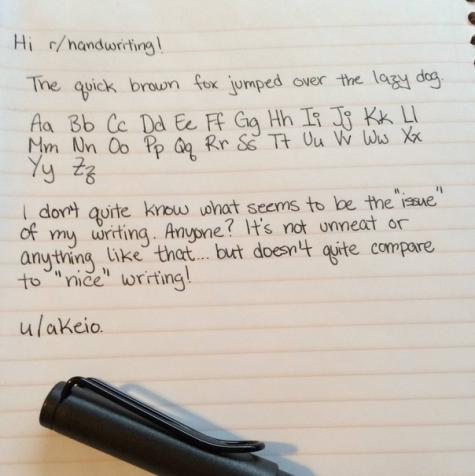 Hi r/handwriting!
The quick brown fox jumped over the lazy dog.
Aa Bb Cc Dd Ee Ff Gg Hh Ii Jj Kk Ll
Mm Nn Oo Pp Qq Rr Ss Tt Uu Vv Ww Xx
Yy Zz
I don't quite know what seems to be the "issue"
of my writing. Anyone? It's not unneat or
anything like that... but doesn't quite compare
to "nice" writing!
u/akeio.